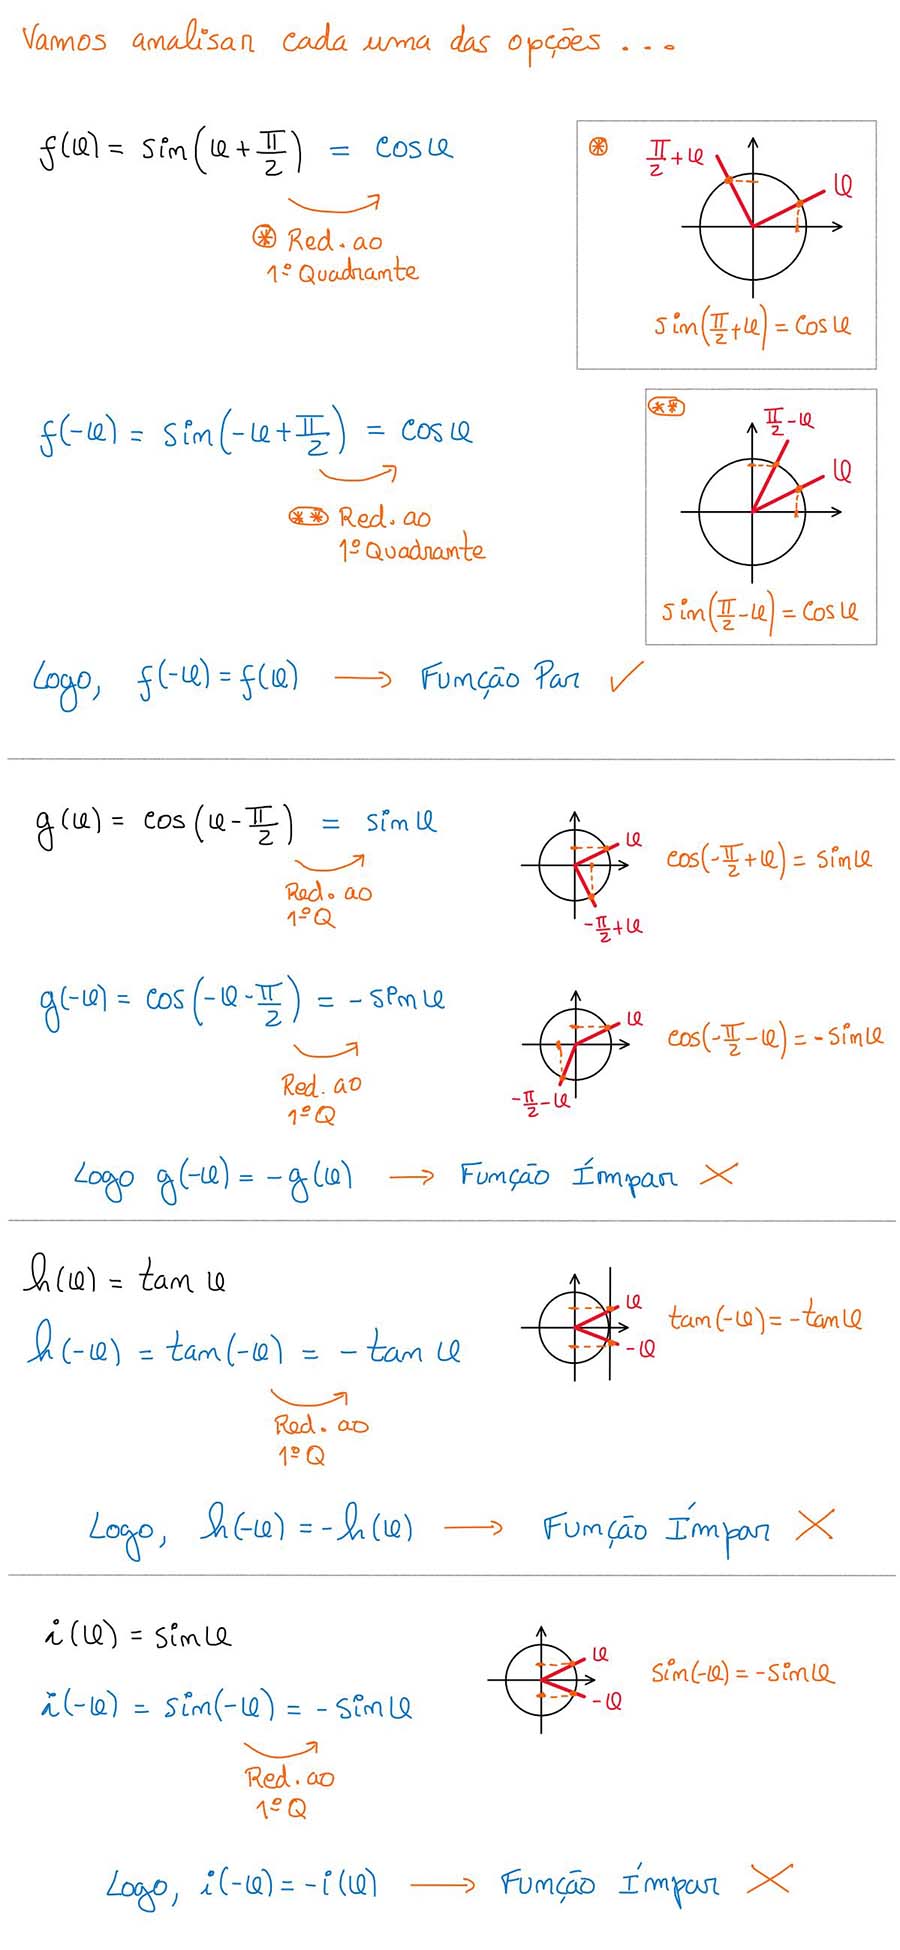 Vamos analisar cada uma das opções ...
f(φ) = sin(φ + π/2) = cos φ
⊛ Red. ao
1º Quadrante
⊛
π/2 + φ
φ
sin(π/2 + φ) = cos φ
f(-φ) = sin(-φ + π/2) = cos φ
(**) Red. ao
1º Quadrante
(**)
π/2 - φ
φ
sin(π/2 - φ) = cos φ
Logo, f(-φ) = f(φ) → Função Par ✓
g(φ) = cos(φ - π/2) = sin φ
Red. ao
1º Q
φ
-π/2 + φ
cos(-π/2 + φ) = sin φ
g(-φ) = cos(-φ - π/2) = - sin φ
Red. ao
1º Q
φ
-π/2 - φ
cos(-π/2 - φ) = - sin φ
Logo g(-φ) = - g(φ) → Função Ímpar ×
h(φ) = tan φ
h(-φ) = tan(-φ) = - tan φ
Red. ao
1º Q
φ
-φ
tan(-φ) = - tan φ
Logo, h(-φ) = - h(φ) → Função Ímpar ×
i(φ) = sin φ
i(-φ) = sin(-φ) = - sin φ
Red. ao
1º Q
φ
-φ
sin(-φ) = - sin φ
Logo, i(-φ) = - i(φ) → Função Ímpar ×